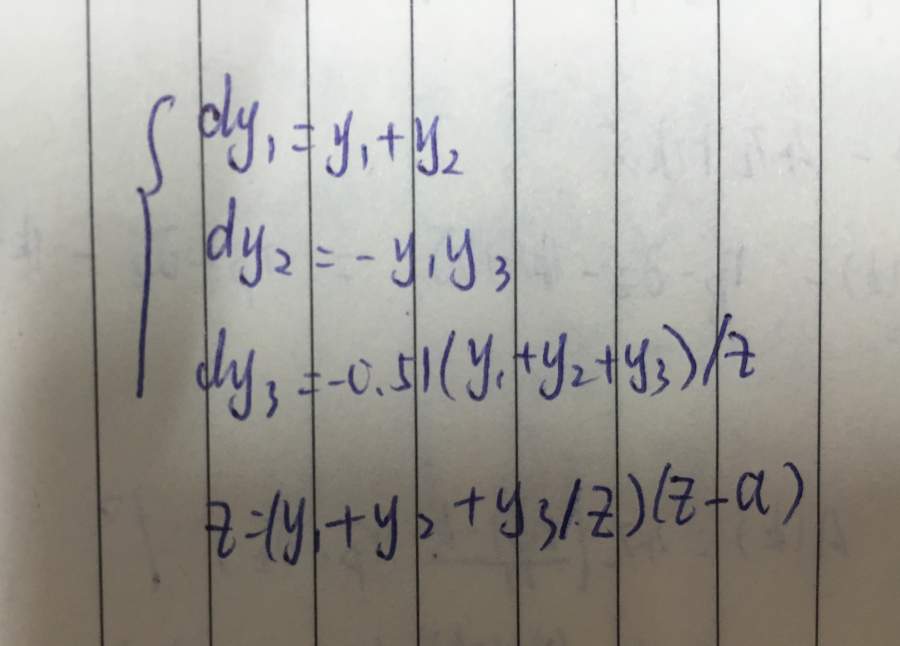 dy₁ = y₁ + y₂
dy₂ = - y₁ y₃
dy₃ = -0.51(y₁ + y₂ + y₃)/z
z = (y₁ + y₂ + y₃/z)(z - a)